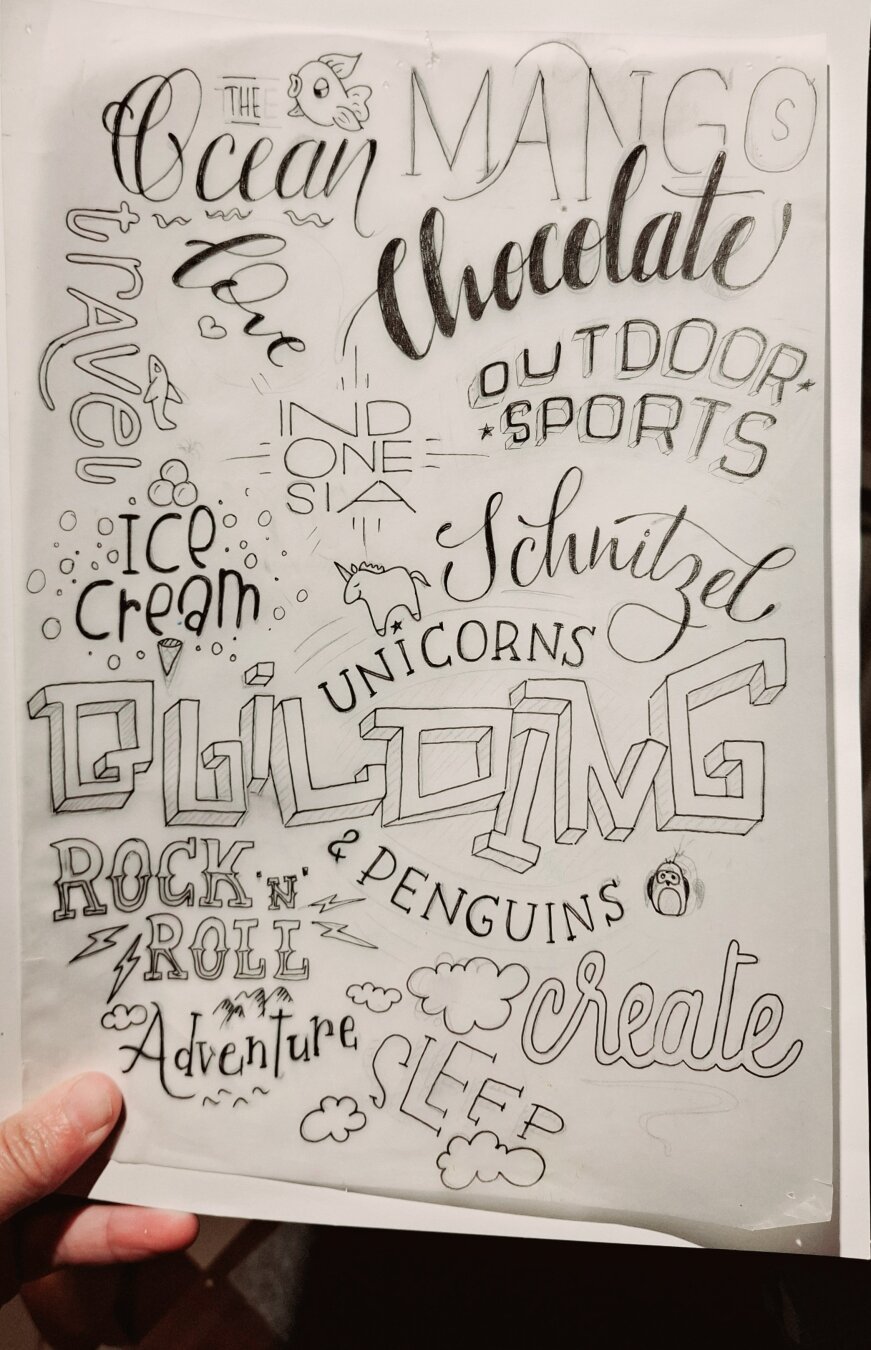 THE
Ocean
MANGOS
travel
love
Chocolate
OUTDOOR
SPORTS
IND
ONE
SIA
Ice
cream
Schnitzel
UNiCORNS
BUiLDING
& PENGUINS
ROCK 'N'
ROLL
create
Adventure
SLEEP